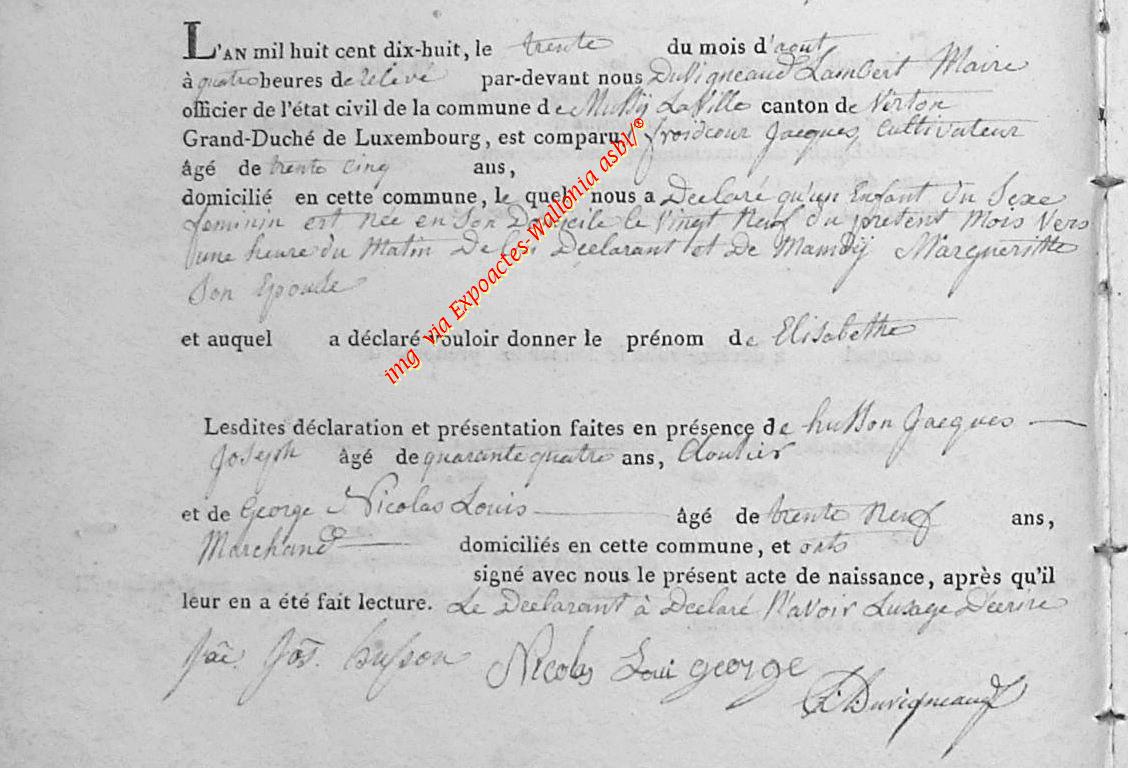 L'AN mil huit cent dix-huit, le trente du mois d'aout
à quatre heures de relevé par-devant nous Duvigneaud Lambert Maire
officier de l'état civil de la commune de Mussy Laville canton de Virton
Grand-Duché de Luxembourg, est comparu froidcour Jacques, Cultivateur
âgé de trente cinq ans,
domicilié en cette commune, le quel nous a Declaré qu'un Enfant du Sexe
feminin est née en Son Domicile le vingt Neuf du present Mois vers
une heure du Matin De lui Declarant et De Mamdÿ Margueritte
Son Epouse
et auquel a déclaré vouloir donner le prénom de Elisabethe
Lesdites déclaration et présentation faites en présence de husson Jacques
Joseph âgé de quarante quatre ans, Cloutier
et de George Nicolas Louis âgé de trente Neuf ans,
Marchand domiciliés en cette commune, et onts
signé avec nous le présent acte de naissance, après qu'il
leur en a été fait lecture. Le Declarant à Declaré N'avoir Lusage D'ecrire
Jac. Jos. husson Nicolas Loui george
Duvigneaud
img via Expoactes-Wallonia asbl®